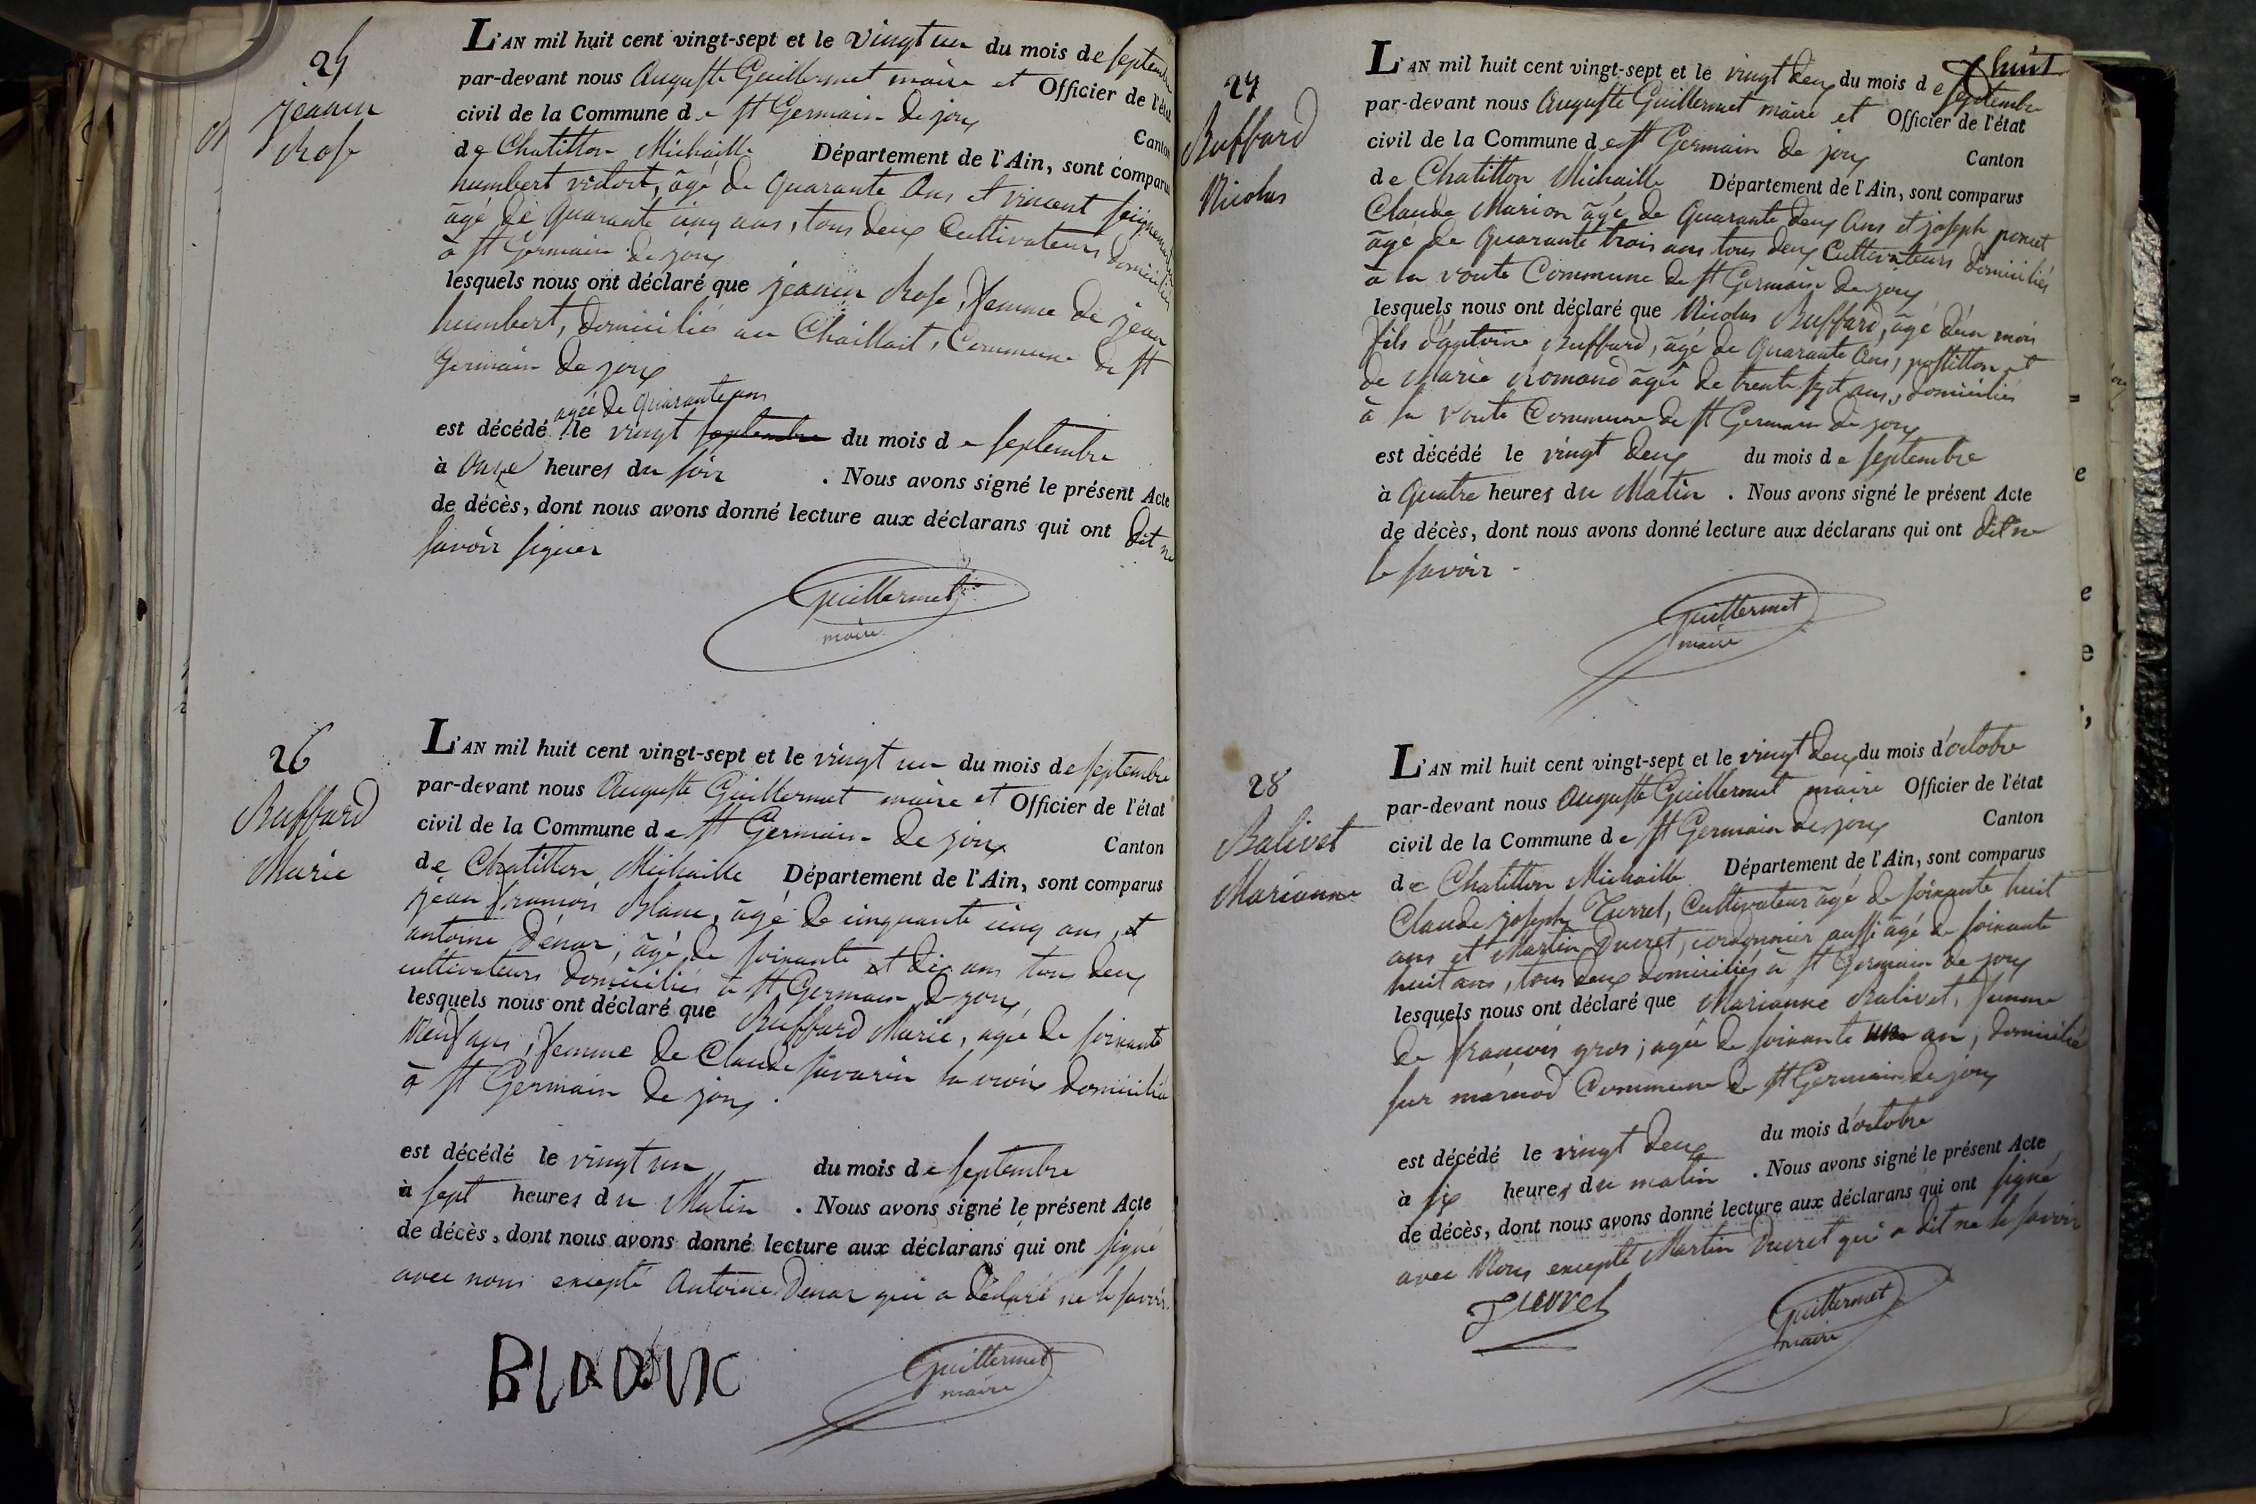 25
jeanin
Rose
L'AN mil huit cent vingt-sept et le vingt un du mois de septembre
par-devant nous Auguste Guillermet maire et Officier de l'état
civil de la Commune de St Germain de joux Canton
de Chatillon Michaille Département de l'Ain, sont comparus
humbert victort, âgé de quarante ans et vincent
âgé de quarante cinq ans, tous deux Cultivateurs domiciliés
à St Germain de joux
lesquels nous ont déclaré que jeanin Rose, femme de jean
humbert, domiciliés au Chaillait, Commune de St
Germain de joux
agée de quarante ans
est décédé le vingt septembre du mois de septembre
à onze heures du soir . Nous avons signé le présent Acte
de décès, dont nous avons donné lecture aux déclarans qui ont dit ne
savoir signer
Guillermet
maire
26
Buffard
Marie
L'AN mil huit cent vingt-sept et le vingt un du mois de septembre
par-devant nous Auguste Guillermet maire et Officier de l'état
civil de la Commune de St Germain de joux Canton
de Chatillon Michaille Département de l'Ain, sont comparus
jean françois Blanc, âgé de cinquante cinq ans, et
antoine Dénar, âgé de soixante et dix ans tous deux
cultivateurs domiciliés à St Germain de joux
lesquels nous ont déclaré que Buffard Marie, agée de soixante
neuf ans, femme de Claude savarin domiciliée
à St Germain de joux.
est décédé le vingt un du mois de septembre
à sept heures du Matin . Nous avons signé le présent Acte
de décès, dont nous avons donné lecture aux déclarans qui ont signé
avec nous excepté Antoine Dénar qui a déclaré ne le savoir.
Guillermet
maire
27
Buffard
Nicolas
huit
L'AN mil huit cent vingt-sept et le vingt deux du mois de septembre
par-devant nous Auguste Guillermet maire et Officier de l'état
civil de la Commune de St Germain de joux Canton
de Chatillon Michaille Département de l'Ain, sont comparus
Claude Marion âgé de quarante deux ans et joseph poncet
âgé de quarante trois ans tous deux Cultivateurs domiciliés
à la voute Commune de St Germain de joux
lesquels nous ont déclaré que Nicolas Buffard, âgé d'un mois
fils d'antoine Buffard, âgé de quarante ans, postillon et
de Marie Romand âgée de trente sept ans, domiciliés
à la voute Commune de St Germain de joux
est décédé le vingt deux du mois de septembre
à quatre heures du Matin . Nous avons signé le présent Acte
de décès, dont nous avons donné lecture aux déclarans qui ont dit ne
le savoir.
Guillermet
maire
28
Balivet
Marianne
L'AN mil huit cent vingt-sept et le vingt deux du mois d'octobre
par-devant nous Auguste Guillermet maire Officier de l'état
civil de la Commune de St Germain de joux Canton
de Chatillon Michaille Département de l'Ain, sont comparus
Claude joseph Turrel, Cultivateur âgé de soixante huit
ans et Martin Ducret, cordonnier aussi âgé de soixante
huit ans, tous deux domiciliés à St Germain de joux
lesquels nous ont déclaré que Marianne Balivet, femme
de françois gros, agée de soixante un an, domiciliée
sur marnod Commune de St Germain de joux
est décédé le vingt deux du mois d'octobre
à six heures du matin . Nous avons signé le présent Acte
de décès, dont nous avons donné lecture aux déclarans qui ont signé
avec Nous excepté Martin Ducret qui a dit ne le savoir
Turrel
Guillermet
maire